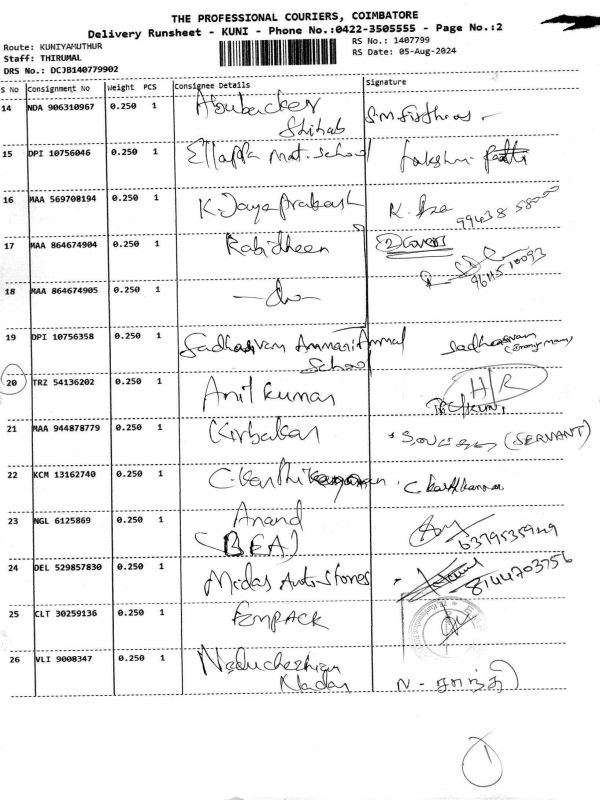 THE PROFESSIONAL COURIERS, COIMBATORE
Delivery Runsheet - KUNI - Phone No.:0422-3505555 - Page No.:2
Route: KUNIYAMUTHUR
RS No.: 1407799
Staff: THIRUMAL
RS Date: 05-Aug-2024
DRS No.: DCJB140779902
S No Consignment No Weight PCS Consignee Details Signature
14 NDA 906310967 0.250 1 Abubacker
Shihab
15 DPI 10756046 0.250 1 Ellappa mat. school Lakshmi
16 MAA 569708194 0.250 1 K. Jaya Prakash K.
99438 58000
17 MAA 864674904 0.250 1 Rabidheen 2 Covers
9611510093
18 MAA 864674905 0.250 1 -do-
19 DPI 10756358 0.250 1 Sadhasivam Ammani Ammal
School
20 TRZ 54136202 0.250 1 Anil kumar H/R
21 MAA 944878779 0.250 1 Kirbakar (SERVANT)
22 KCM 13162740 0.250 1 C. Karthikeyan
23 NGL 6125869 0.250 1 Anand
(BFA) 6379535949
24 DEL 529857830 0.250 1 Midas Auto Stores 8144703756
25 CLT 30259136 0.250 1 FONPACK
26 VLI 9008347 0.250 1 Neduchezhian
Nadar N - சாந்தி